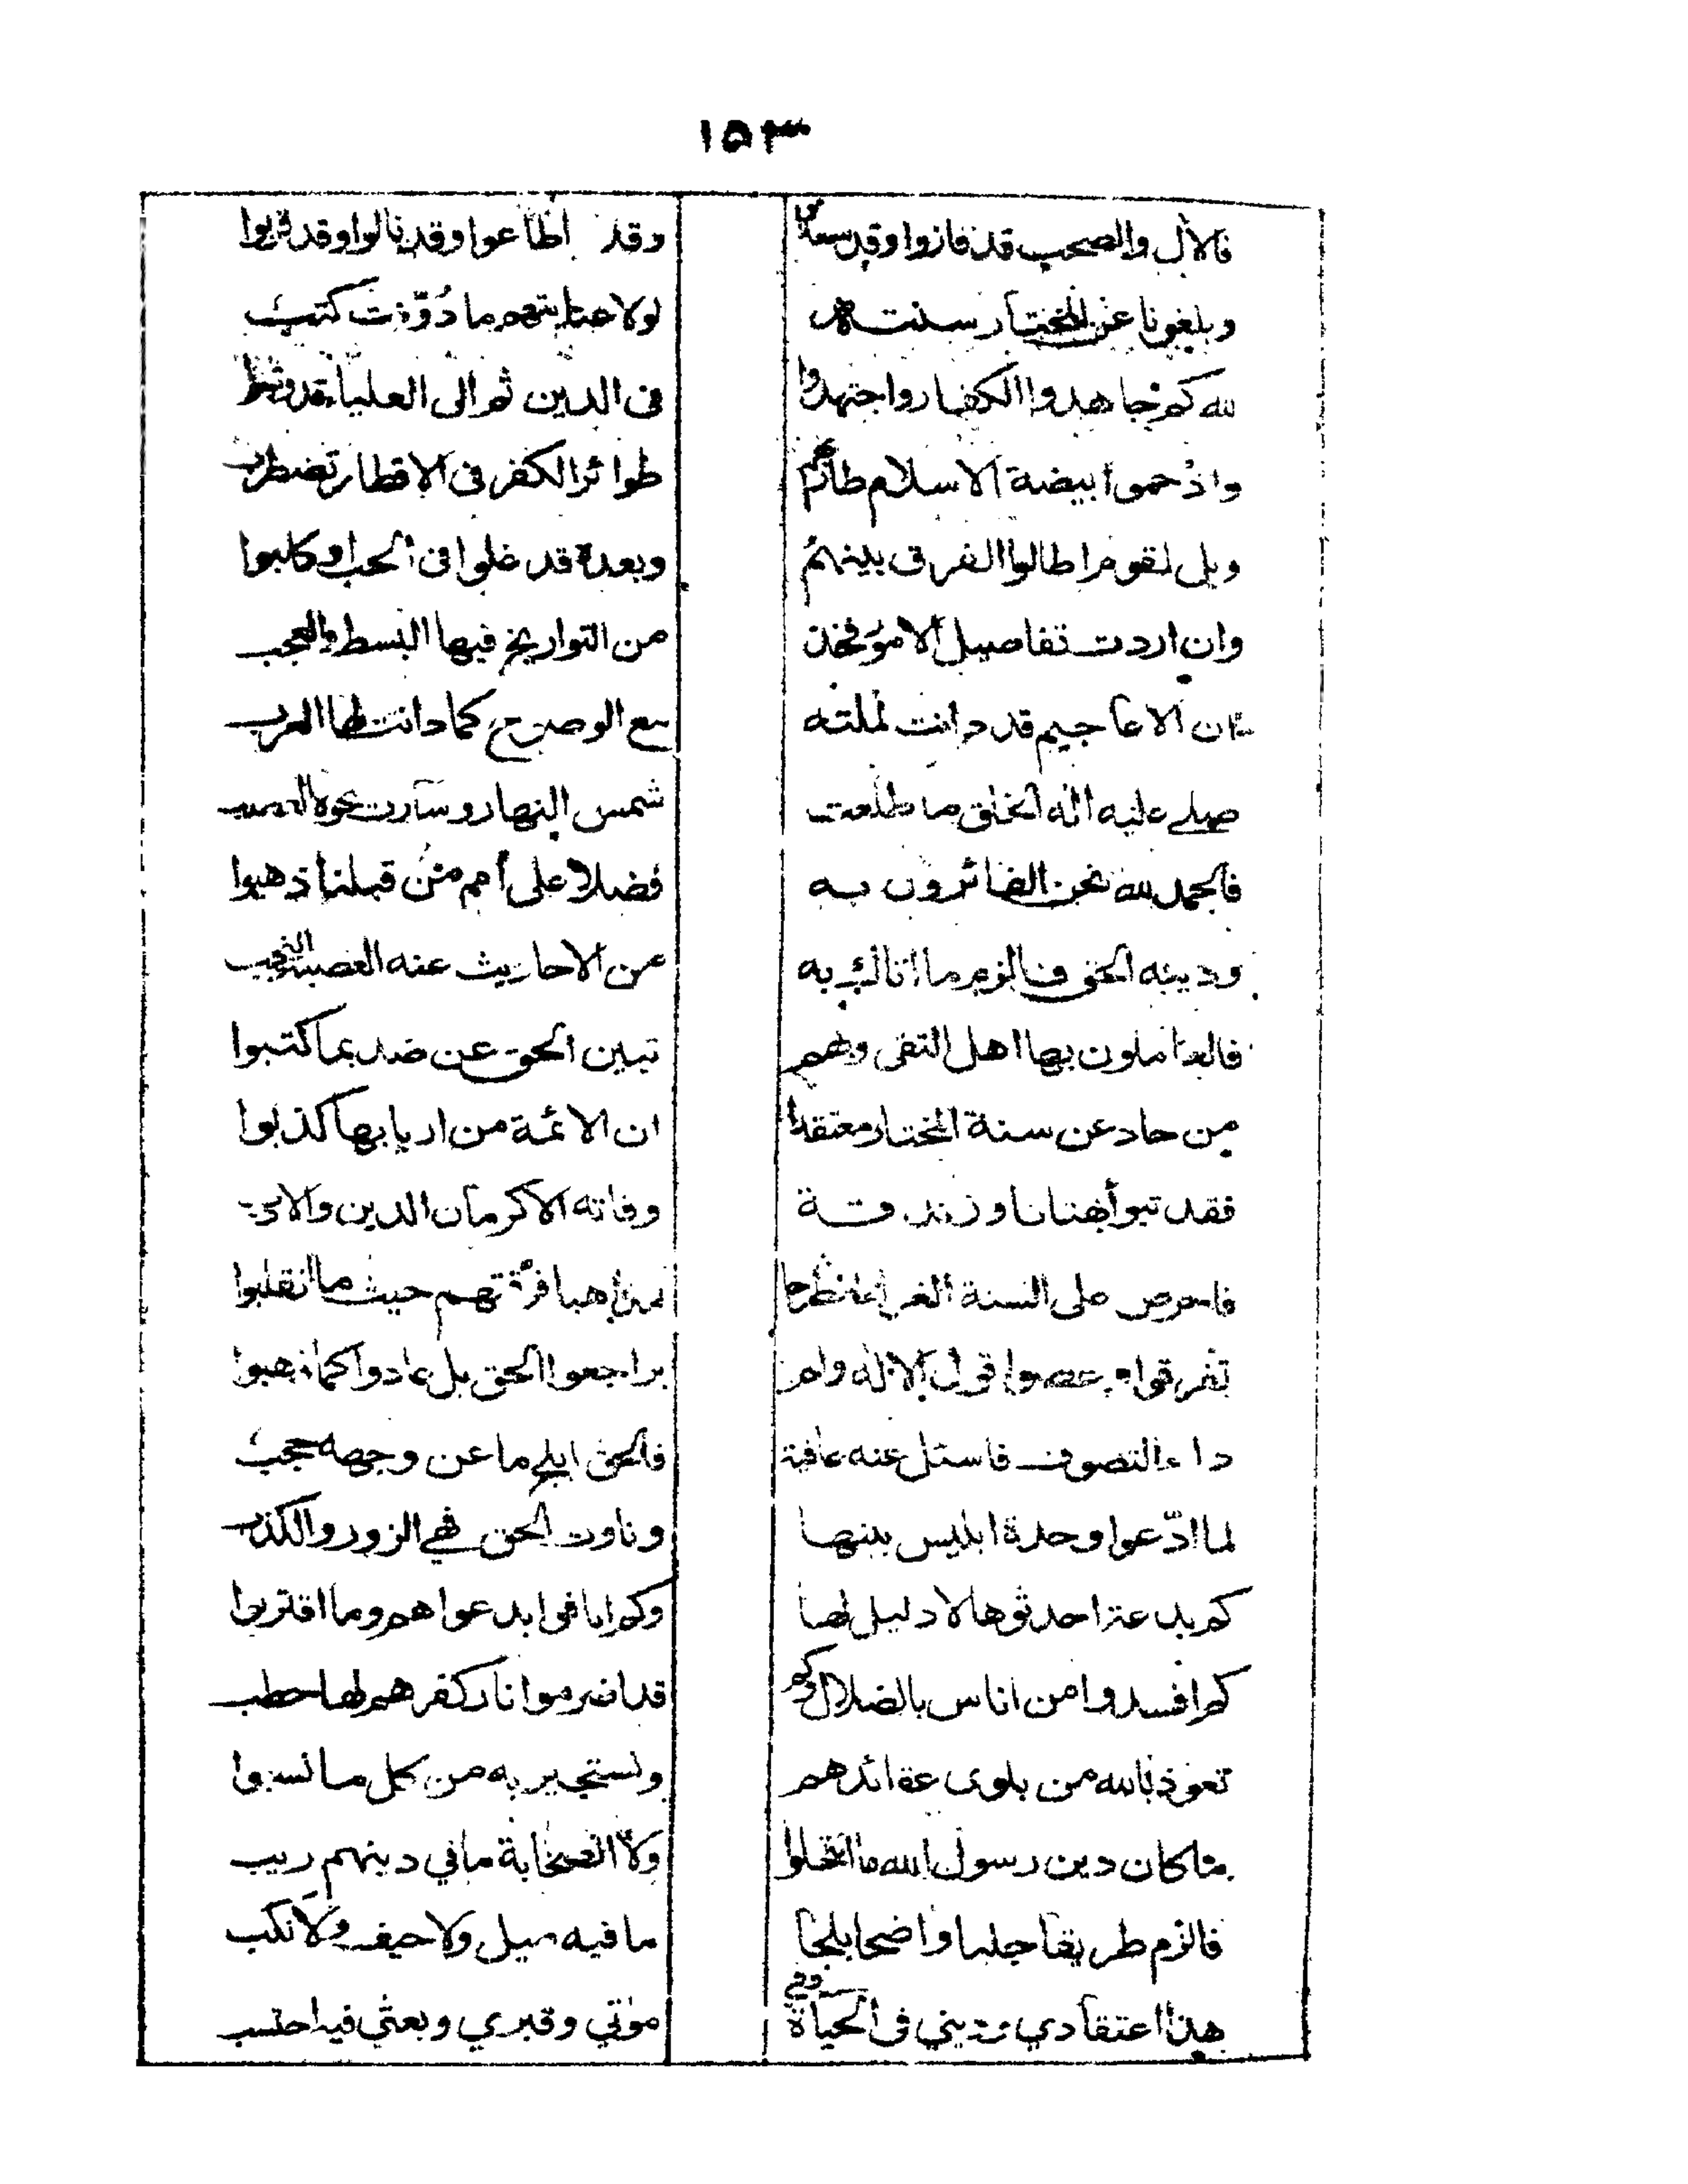 ١٥٣
فالآل والصحب قد فازوا وقد سعدوا وقد أطاعوا وقد نالوا وقد قربوا
وبلغونا عن المختار سنته لولا عنايتهم ما دُوّنت كتب
لله كم جاهدوا الكفار واجتهدوا في الدين ثم الى العليا قد
واذ حموا بيضة الاسلام طائرهم طوائر الكفر في الاقطار تضطرب
ويل لقوم اطالوا الفرق بينهمُ وبعده قد غلوا في الحب وكلبوا
وان اردت تفاصيل الامور فخذ من التواريخ فيها البسط والعجب
ان الاعاجيم قد دانت لملته مع الوضوح كما دانت لها العرب
صلى عليه اله الخلق ما طلعت شمس النهار وسارت نحوه
فالحمد لله نحن الفائزون به فضلا على أمم من قبلنا ذهبوا
ودينه الحق فالزم ما اتاك به من الاحاديث عنه العصبة النجب
فالعاملون بها اهل التقى وبهم تبين الحق عن ضد بما كتبوا
من حاد عن سنة المختار معتقدا ان الائمة من اربابها كذبوا
فقد تبوأ بهتانا وزندقة وفاته الاكرمان الدين والادب
فاحرص على السنة الغرا مذاهبا فرقتهم حيث ما انقلبوا
تفرقوا وعصوا قول الاله ولم يراجعوا الحق بل عادوا كما ذهبوا
داء التصوف فاسئل عنه عافية فالحق ابلج ما عن وجهه حجب
لما ادّعوا وحدة ابليس بينها وناوت الحق فهي الزور والكذب
كم بدعة احدثوها لا دليل لها وكم ابدعواهم وما اقتربوا
كم افسدوا من اناس بالضلال وكم قد اضرموا نار كفر هم لها حطب
نعوذ بالله من بلوى عقائدهم ونستجير به من كل ما نسبوا
ما كان دين رسول الله ما انتحلوا ولا الصحابة ما في دينهم ريب
فالزم طريقا جليا واضحا بلجا ما فيه ميل ولا حيف ولا نكب
هذا اعتقادي وديني في الحياة وفي موتي وقبري وبعثي فيه احتسب